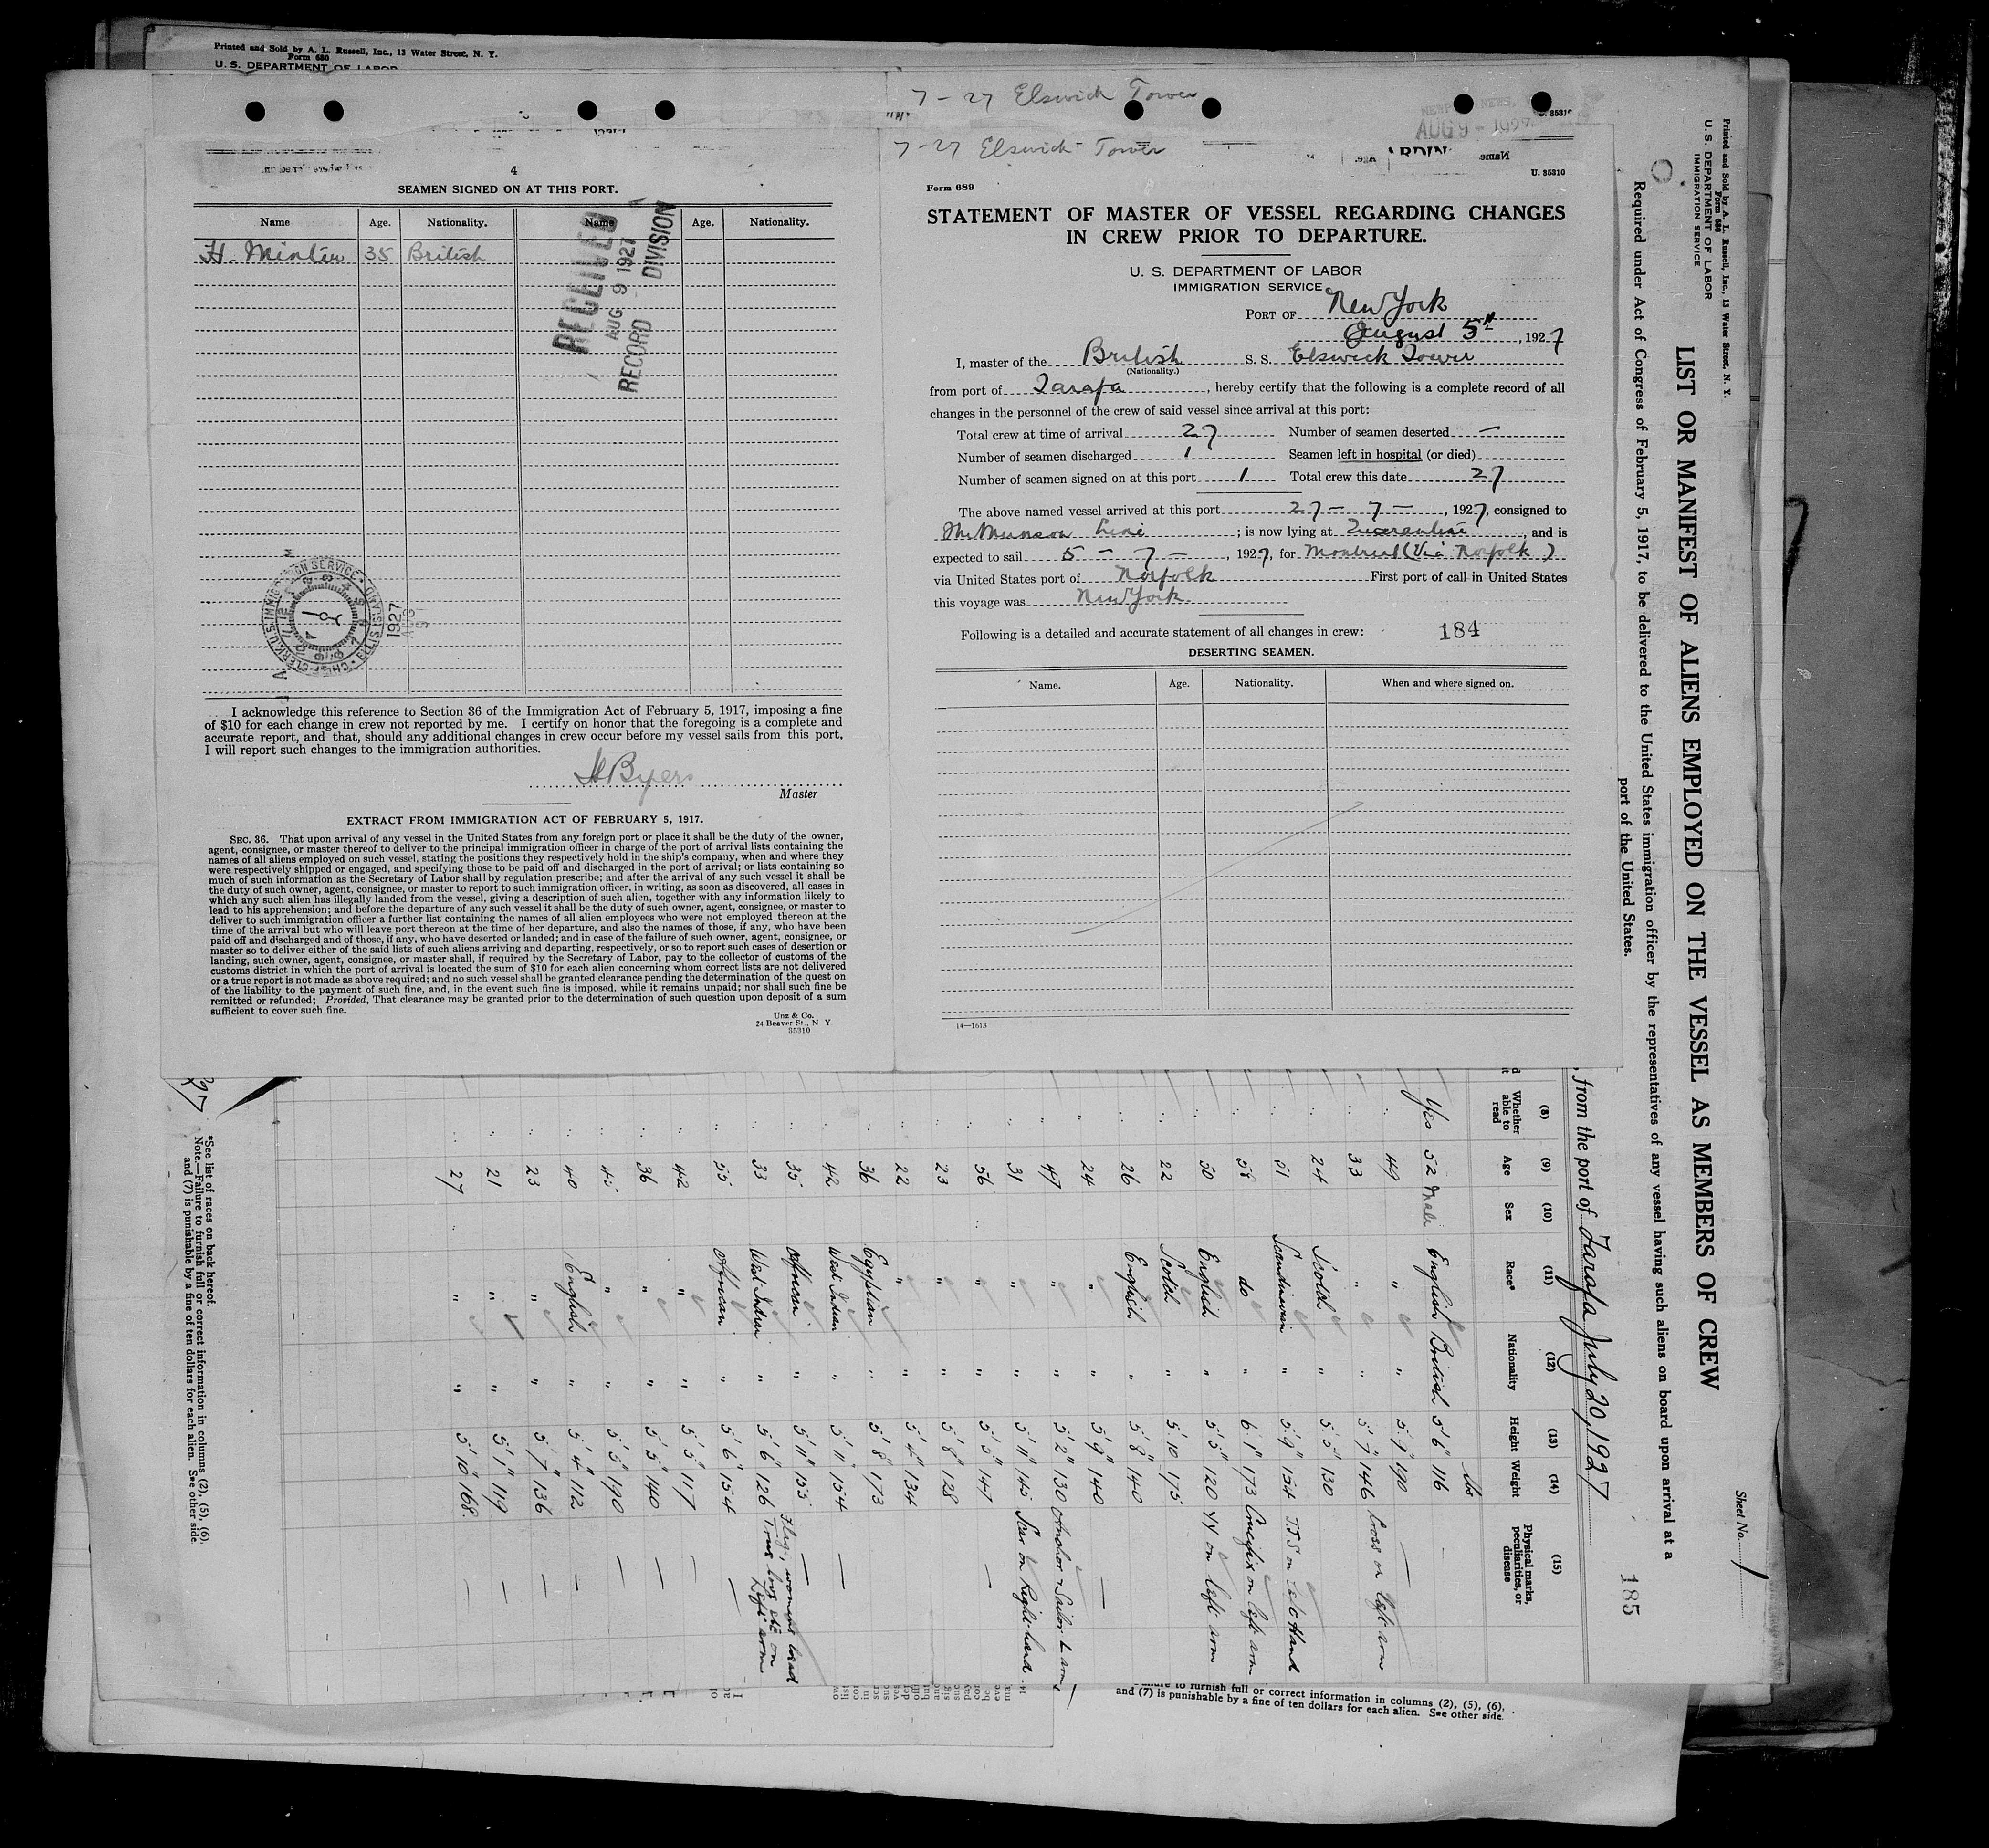 Printed and Sold by A. L. Russell, Inc., 13 Water Street, N. Y.
Form 680
U. S. DEPARTMENT OF LABOR
7-27 Elswick Tower
AUG 9 - 1927
7-27 Elswick Tower
4
SEAMEN SIGNED ON AT THIS PORT.
Name Age. Nationality. Name Age. Nationality.
H. Minter 35 British
RECEIVED
AUG 9 1927
RECORD DIVISION
I acknowledge this reference to Section 36 of the Immigration Act of February 5, 1917, imposing a fine
of $10 for each change in crew not reported by me. I certify on honor that the foregoing is a complete and
accurate report, and that, should any additional changes in crew occur before my vessel sails from this port,
I will report such changes to the immigration authorities.
H Byers
Master
EXTRACT FROM IMMIGRATION ACT OF FEBRUARY 5, 1917.
SEC. 36. That upon arrival of any vessel in the United States from any foreign port or place it shall be the duty of the owner,
agent, consignee, or master thereof to deliver to the principal immigration officer in charge of the port of arrival lists containing the
names of all aliens employed on such vessel, stating the positions they respectively hold in the ship's company, when and where they
were respectively shipped or engaged, and specifying those to be paid off and discharged in the port of arrival; or lists containing so
much of such information as the Secretary of Labor shall by regulation prescribe; and after the arrival of any such vessel it shall be
the duty of such owner, agent, consignee, or master to report to such immigration officer, in writing, as soon as discovered, all cases in
which any such alien has illegally landed from the vessel, giving a description of such alien, together with any information likely to
lead to his apprehension; and before the departure of any such vessel it shall be the duty of such owner, agent, consignee, or master to
deliver to such immigration officer a further list containing the names of all alien employees who were not employed thereon at the
time of the arrival but who will leave port thereon at the time of her departure, and also the names of those, if any, who have been
paid off and discharged and of those, if any, who have deserted or landed; and in case of the failure of such owner, agent, consignee, or
master so to deliver either of the said lists of such aliens arriving and departing, respectively, or so to report such cases of desertion or
landing, such owner, agent, consignee, or master shall, if required by the Secretary of Labor, pay to the collector of customs of the
customs district in which the port of arrival is located the sum of $10 for each alien concerning whom correct lists are not delivered
or a true report is not made as above required; and no such vessel shall be granted clearance pending the determination of the quest on
of the liability to the payment of such fine, and, in the event such fine is imposed, while it remains unpaid; nor shall such fine be
remitted or refunded; Provided, That clearance may be granted prior to the determination of such question upon deposit of a sum
sufficient to cover such fine.
Unz & Co.
24 Beaver St., N Y.
35310
U. 35310
Form 689
STATEMENT OF MASTER OF VESSEL REGARDING CHANGES
IN CREW PRIOR TO DEPARTURE.
U. S. DEPARTMENT OF LABOR
IMMIGRATION SERVICE
PORT OF New York
August 5th, 1927
I, master of the British S. S. Elswick Tower
(Nationality.)
from port of Tarafa, hereby certify that the following is a complete record of all
changes in the personnel of the crew of said vessel since arrival at this port:
Total crew at time of arrival 27 Number of seamen deserted —
Number of seamen discharged 1 Seamen left in hospital (or died)
Number of seamen signed on at this port 1 Total crew this date 27
The above named vessel arrived at this port 27 - 7 -, 1927, consigned to
The Munson Line; is now lying at Quarantine, and is
expected to sail 5 - 7 -, 1927, for Montreal (Via Norfolk)
via United States port of Norfolk First port of call in United States
this voyage was New York
Following is a detailed and accurate statement of all changes in crew: 184
DESERTING SEAMEN.
Name. Age. Nationality. When and where signed on.
14—1613
Printed and Sold by A. L. Russell, Inc., 13 Water Street, N. Y.
Form 680
U. S. DEPARTMENT OF LABOR
IMMIGRATION SERVICE
Sheet No. 1
LIST OR MANIFEST OF ALIENS EMPLOYED ON THE VESSEL AS MEMBERS OF CREW
Required under Act of Congress of February 5, 1917, to be delivered to the United States immigration officer by the representatives of any vessel having such aliens on board upon arrival at a
port of the United States.
185
, from the port of Tarafa July 20, 1927
(8) (9) (10) (11) (12) (13) (14) (15)
Whether able to read Age Sex Race* Nationality Height Weight Physical marks, peculiarities, or disease
lbs
Yes 52 Male English British 5' 6" 116
" 49 " " 5' 9" 190 —
" 33 " " 5' 7" 146 Cross on left arm
" 24 Scotch " 5' 5" 130
" 51 Scandinavian " 5' 9" 154 J.J.S on left Hand
" 58 do " 6' 1" 173 Crucifix on left arm
" 50 English " 5' 5" 120 YY on left arm
" 22 Scotch " 5' 10 175
" 26 English " 5' 8" 140
" 24 " " 5' 9" 140 —
" 47 " " 5' 2" 130 Anchor & Sailor L arm
" 31 " " 5' 11" 145 Scar on Right hand
" 56 " " 5' 5" 147 —
" 23 " " 5' 8" 128
" 22 " " 5' 4" 134
" 36 Egyptian " 5' 8" 173
" 42 West Indian " 5' 11" 154 —
" 35 African " 5' 11" 155 —
" 33 West Indian " 5' 6" 126 Flag, womans head
on Left arm
" 55 African " 5' 6" 154 —
" 42 " " 5' 5" 117 —
" 36 " " 5' 5" 140 —
" 45 " " 5' 5" 190 —
" 40 English " 5' 4" 112 —
" 23 " " 5' 7" 136 —
" 21 " " 5' 1" 119 —
" 27 " " 5' 10" 168 —
*See list of races on back hereof.
Note.—Failure to furnish full or correct information in columns (2), (5), (6),
and (7) is punishable by a fine of ten dollars for each alien. See other side
to furnish full or correct information in columns (2), (5), (6),
and (7) is punishable by a fine of ten dollars for each alien. See other side.